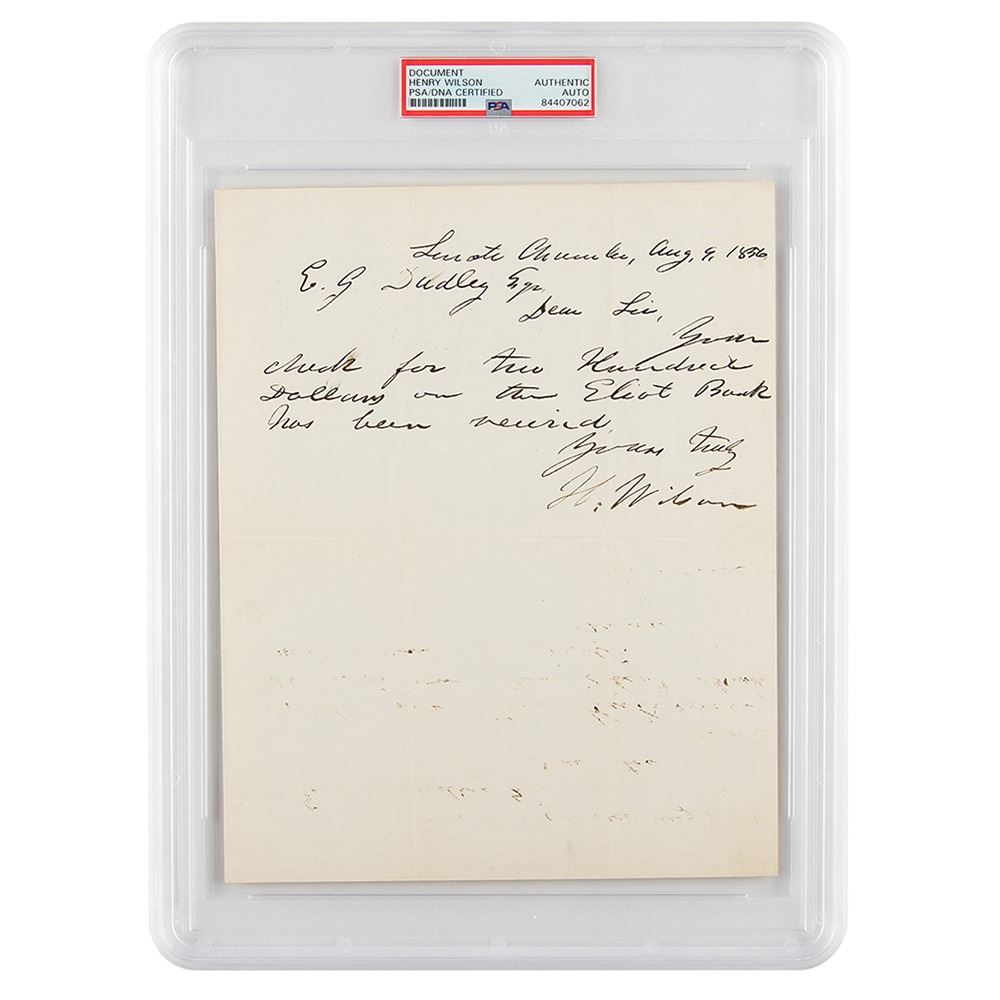 DOCUMENT
HENRY WILSON
PSA/DNA CERTIFIED
AUTHENTIC
AUTO
84407062
PSA
Senate Chamber, Aug. 9, 1856
E. G Dudley Esqr,
Dear Sir,
Your
check for two Hundred
Dollars on the Eliot Bank
has been received.
Yours truly
H. Wilson